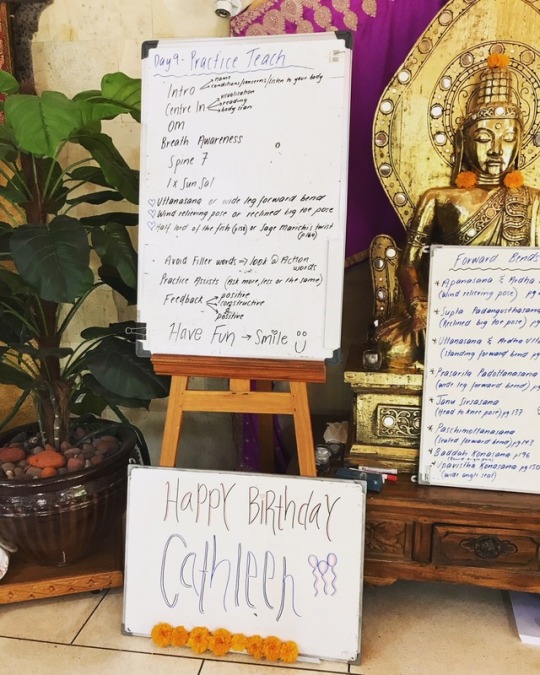 Day 9 - Practice Teach
Intro
name
conditions/concerns/listen to your body
Centre In
visualisation
breathing
body scan
OM
Breath Awareness
Spine 7
1 x Sun Sal
Uttanasana or wide leg forward bend
Wind relieving pose or reclined big toe pose
Half lord of the fish (p168) or Sage Marichi's twist
• Avoid Filler words → look @ Action words
Practice Assists (Ask more, less or the same)
Feedback
positive
constructive
&
positive
Have Fun → Smile
Forward Bends
* Apanasana & Ardha
(wind relieving pose) pg
* Supta Padangusthasana
(Reclined big toe pose) pg
* Uttanasana & Ardha Utta
(standing forward bend pg
* Prasarita Padottanasana
(wide leg forward bend) pg
* Janu Sirsasana
(Head to knee pose) pg 137
* Paschimottanasana
(seated forward bend) pg 143
* Baddah Konasana p196
* Upavistha Konasana pg 150
(wide angle seat)
Happy Birthday
Cathleen